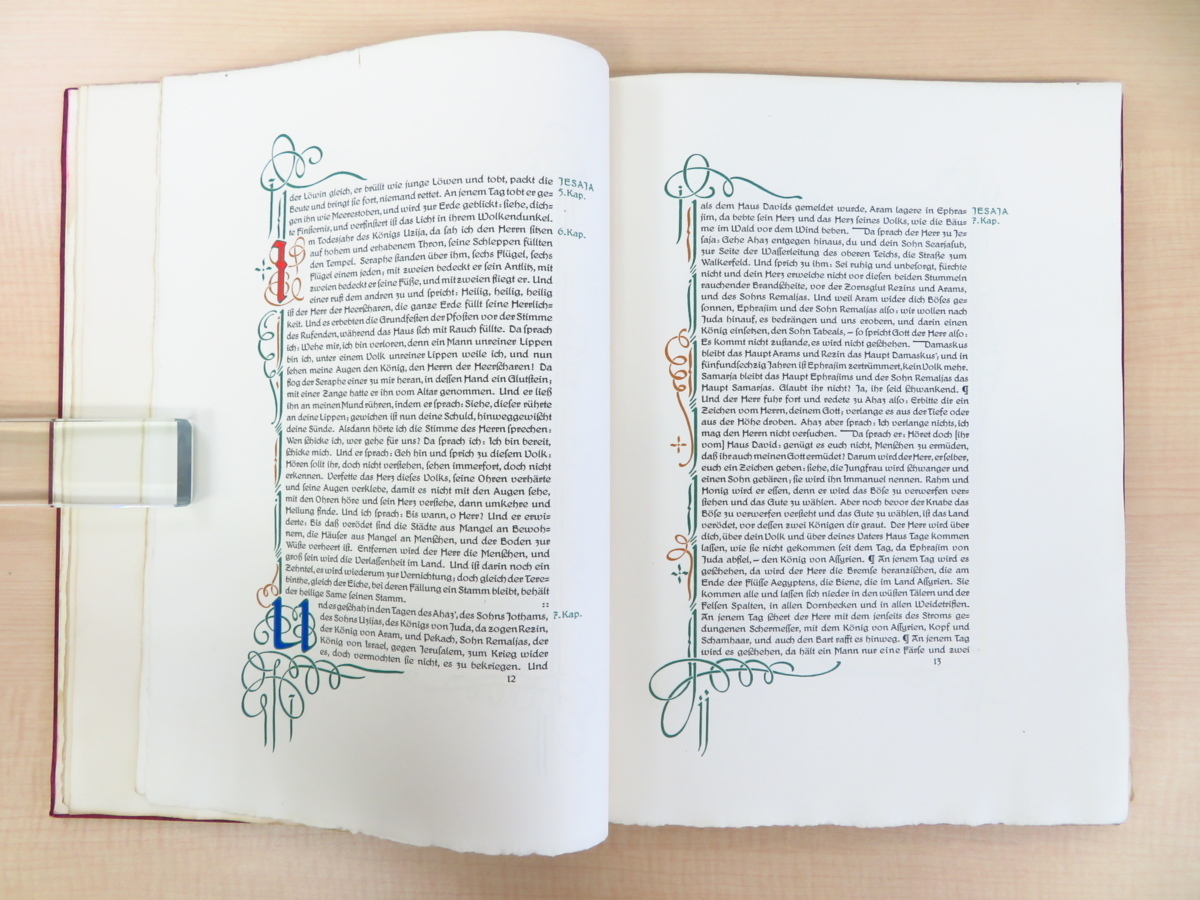 der Löwin gleich, er brüllt wie junge Löwen und tobt, packt die
JESAJA
5. Kap.
Beute und bringt sie fort, niemand rettet. An jenem Tag tobt er ge=
gen ihn wie Meerestoben, und wird zur Erde geblickt: siehe, dich=
te Finsternis, und verfinstert ist das Licht in ihrem Wolkendunkel.
Im Todesjahr des Königs Uzija, da sah ich den Herrn sitzen
6. Kap.
auf hohem und erhabenem Thron, seine Schleppen füllten
den Tempel. Seraphe standen über ihm, sechs Flügel, sechs
Flügel einem jeden; mit zweien bedeckt er sein Antlitz, mit
zweien bedeckt er seine Füße, und mit zweien fliegt er. Und
einer ruft dem andren zu und spricht: Heilig, heilig, heilig
ist der Herr der Heerscharen, die ganze Erde füllt seine Herrlich=
keit. Und es erbebten die Grundfesten der Pfosten vor der Stimme
des Rufenden, während das Haus sich mit Rauch füllte. Da sprach
ich: Wehe mir, ich bin verloren, denn ein Mann unreiner Lippen
bin ich, unter einem Volk unreiner Lippen weile ich, und nun
sehen meine Augen den König, den Herrn der Heerscharen! Da
flog der Seraphe einer zu mir heran, in dessen Hand ein Glutstein;
mit einer Zange hatte er ihn vom Altar genommen. Und er ließ
ihn an meinen Mund rühren, indem er sprach: Siehe, dieser rührte
an deine Lippen; gewichen ist nun deine Schuld, hinweggewischt
deine Sünde. Alsdann hörte ich die Stimme des Herrn sprechen:
Wen schicke ich, wer gehe für uns? Da sprach ich: Ich bin bereit,
schicke mich. Und er sprach: Geh hin und sprich zu diesem Volk:
Hören sollt ihr, doch nicht verstehen, sehen immerfort, doch nicht
erkennen. Verfette das Herz dieses Volks, seine Ohren verhärte
und seine Augen verklebe, damit es nicht mit den Augen sehe,
mit den Ohren höre und sein Herz verstehe, dann umkehre und
Heilung finde. Und ich sprach: Bis wann, o Herr? Und er erwi=
derte: Bis daß verödet sind die Städte aus Mangel an Bewoh=
nern, die Häuser aus Mangel an Menschen, und der Boden zur
Wüste verheert ist. Entfernen wird der Herr die Menschen, und
groß sein wird die Verlassenheit im Land. Und ist darin noch ein
Zehntel, es wird wiederum zur Vernichtung; doch gleich der Tere=
binthe, gleich der Eiche, bei deren Fällung ein Stamm bleibt, behält
der heilige Same seinen Stamm. ::
Und es geschah in den Tagen des Ahaz', des Sohns Jothams,
7. Kap.
des Sohns Uzijas, des Königs von Juda, da zogen Rezin,
der König von Aram, und Pekach, Sohn Remaljas, der
König von Israel, gegen Jerusalem, zum Krieg wider
es, doch vermochten sie nicht, es zu bekriegen. Und
12
als dem Haus Davids gemeldet wurde, Aram lagere in Ephra=
JESAJA
7. Kap.
jim, da bebte sein Herz und das Herz seines Volks, wie die Bäu=
me im Wald vor dem Wind beben. Da sprach der Herr zu Je=
saja: Gehe Ahaz entgegen hinaus, du und dein Sohn Searjasub,
zur Seite der Wasserleitung des oberen Teichs, die Straße zum
Walkerfeld. Und sprich zu ihm: Sei ruhig und unbesorgt, fürchte
nicht und dein Herz erweiche nicht vor diesen beiden Stummeln
rauchender Brandscheite, vor der Zornsglut Rezins und Arams,
und des Sohns Remaljas. Und weil Aram wider dich Böses ge=
sonnen, Ephrajim und der Sohn Remaljas also: wir wollen nach
Juda hinauf, es bedrängen und uns erobern, und darin einen
König einsetzen, den Sohn Tabeals, – so spricht Gott der Herr also:
Es kommt nicht zustande, es wird nicht geschehen. Damaskus
bleibt das Haupt Arams und Rezin das Haupt Damaskus', und in
fünfundsechzig Jahren ist Ephrajim zertrümmert, kein Volk mehr.
Samarja bleibt das Haupt Ephrajims und der Sohn Remaljas das
Haupt Samarjas. Glaubt ihr nicht? Ja, ihr seid schwankend. ¶
Und der Herr fuhr fort und redete zu Ahaz also: Erbitte dir ein
Zeichen vom Herrn, deinem Gott; verlange es aus der Tiefe oder
aus der Höhe droben. Ahaz aber sprach: Ich verlange nichts, ich
mag den Herrn nicht versuchen. Da sprach er: Höret doch [ihr
vom] Haus David: genügt es euch nicht, Menschen zu ermüden,
daß ihr auch meinen Gott ermüdet? Darum wird der Herr, er selber,
euch ein Zeichen geben: siehe, die Jungfrau wird schwanger und
einen Sohn gebären; sie wird ihn Immanuel nennen. Rahm und
Honig wird er essen, denn er wird das Böse zu verwerfen ver=
stehen und das Gute zu wählen. Aber noch bevor der Knabe das
Böse zu verwerfen versteht und das Gute zu wählen, ist das Land
verödet, vor dessen zwei Königen dir graut. Der Herr wird über
dich, über dein Volk und über deines Vaters Haus Tage kommen
lassen, wie sie nicht gekommen seit dem Tag, da Ephrajim von
Juda abfiel, – den König von Assyrien. ¶ An jenem Tag wird es
geschehen, da wird der Herr die Bremse heranzischen, die am
Ende der Flüsse Aegyptens, die Biene, die im Land Assyrien. Sie
kommen alle und lassen sich nieder in den wüsten Tälern und der
Felsen Spalten, in allen Dornhecken und in allen Weidetriften.
An jenem Tag schert der Herr mit dem jenseits des Stroms ge=
dungenen Schermesser, mit dem König von Assyrien, Kopf und
Schamhaar, und auch den Bart rafft es hinweg. ¶ An jenem Tag
wird es geschehen, da hält ein Mann nur eine Färse und zwei
13